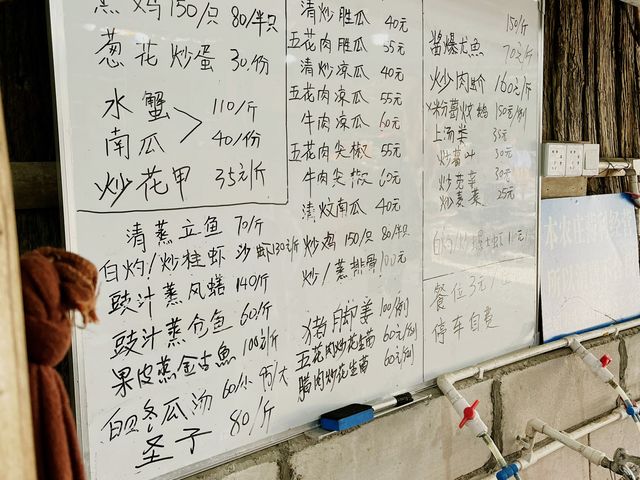 鸡 150/只 80/半只
葱花炒蛋 30/份
水蟹
南瓜
110/斤
40/份
炒花甲 35元/斤
清蒸立鱼 70/斤
白灼/炒桂虾 沙虾130元/斤
豉汁蒸风鳝 140/斤
豉汁蒸仓鱼 60/斤
果皮蒸金古鱼 100元/斤
冬瓜汤 60/小 /大
圣子 80/斤
清炒胜瓜 40元
五花肉胜瓜 55元
清炒凉瓜 40元
五花肉凉瓜 55元
牛肉凉瓜 60元
五花肉尖椒 55元
牛肉尖椒 60元
清炆南瓜 40元
炒鸡 150/只 80/半只
炒/蒸排骨 100元
猪脚姜 100/例
五花肉炒花生芽 60元/例
腊肉炒花生 60元/例
150/斤
酱爆尤魚 70元/斤
炒肉蚧 160元/斤
粉葛炆鹅 150元/例
上汤类 35元
30元
30元
炒素菜 25元
餐位3元/
停车自费
本水庄